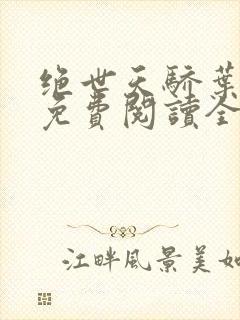 绝世天骄葉
免費閱讀全
江畔風景美如